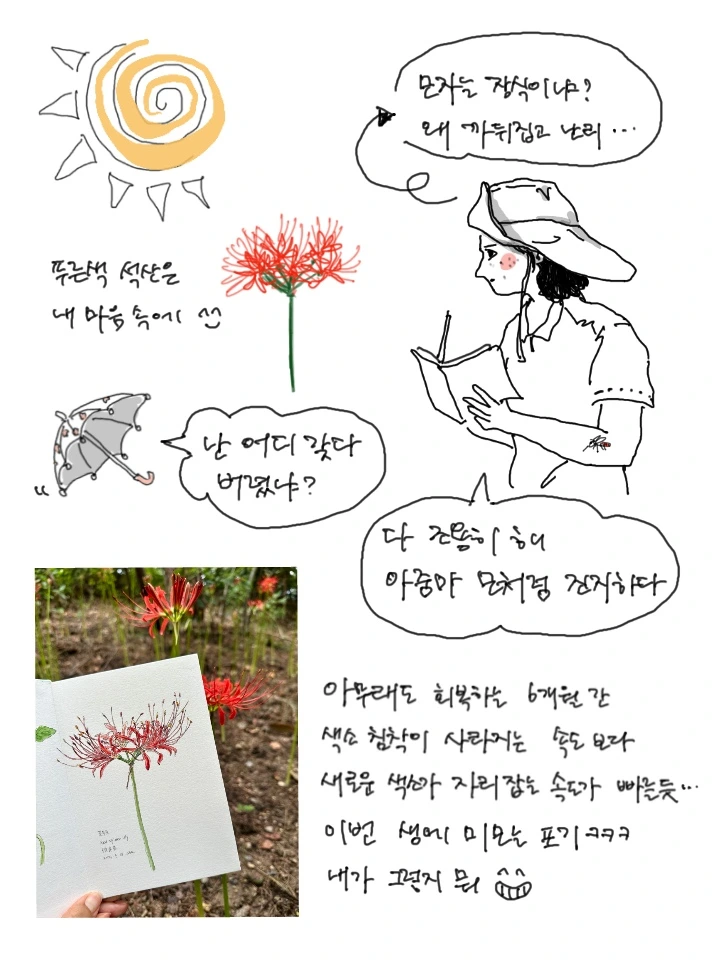 모자는 장식이냐?
왜 까뒤집고 난리...
푸른색 석산은
내 마음속에
난 어디 갖다
버렸냐?
다 조용히 해
아줌마 모처럼 진지하다
아무래도 회복하는 6개월 간
색소 침착이 사라지는 속도 보다
새로운 색소가 자리 잡는 속도가 빠를듯...
이번 생에 미모는 포기 ㅋㅋㅋ
내가 그렇지 뭐